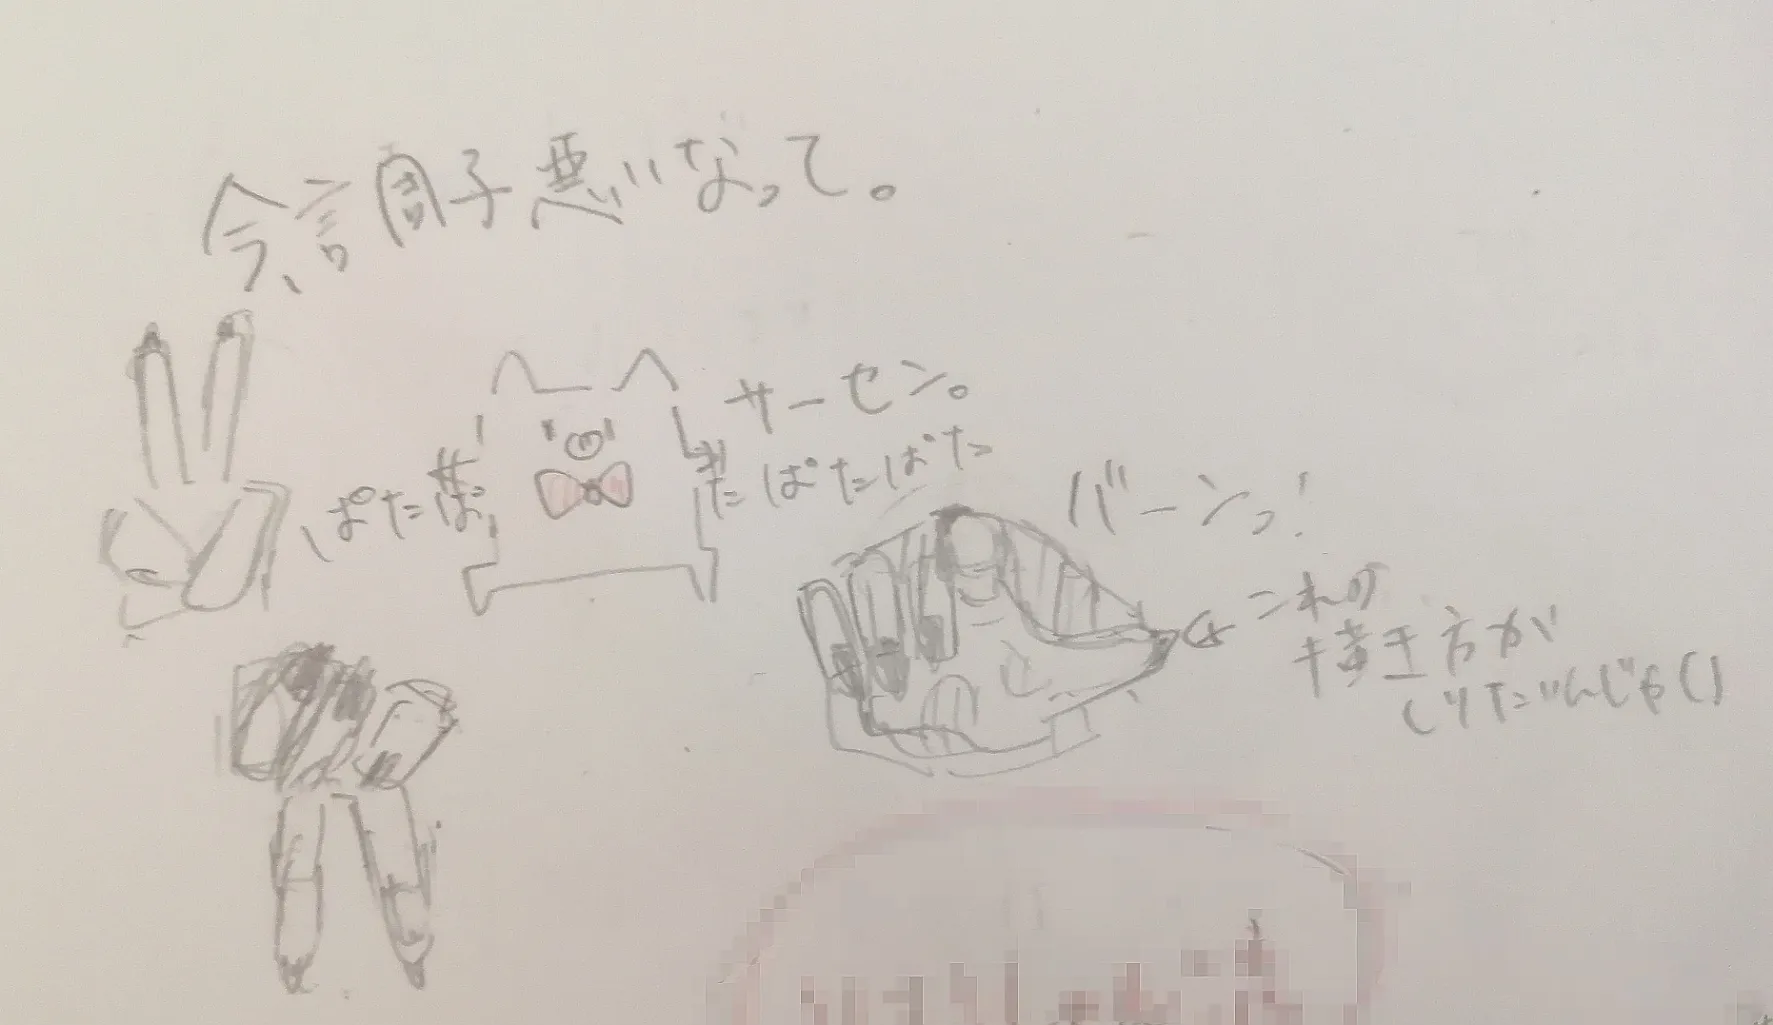 今、調子悪いなって。
サーセン。
ぱたぱ
たぱたぱた
バーンっ!
これの
描き方が
しりたいんじゃい